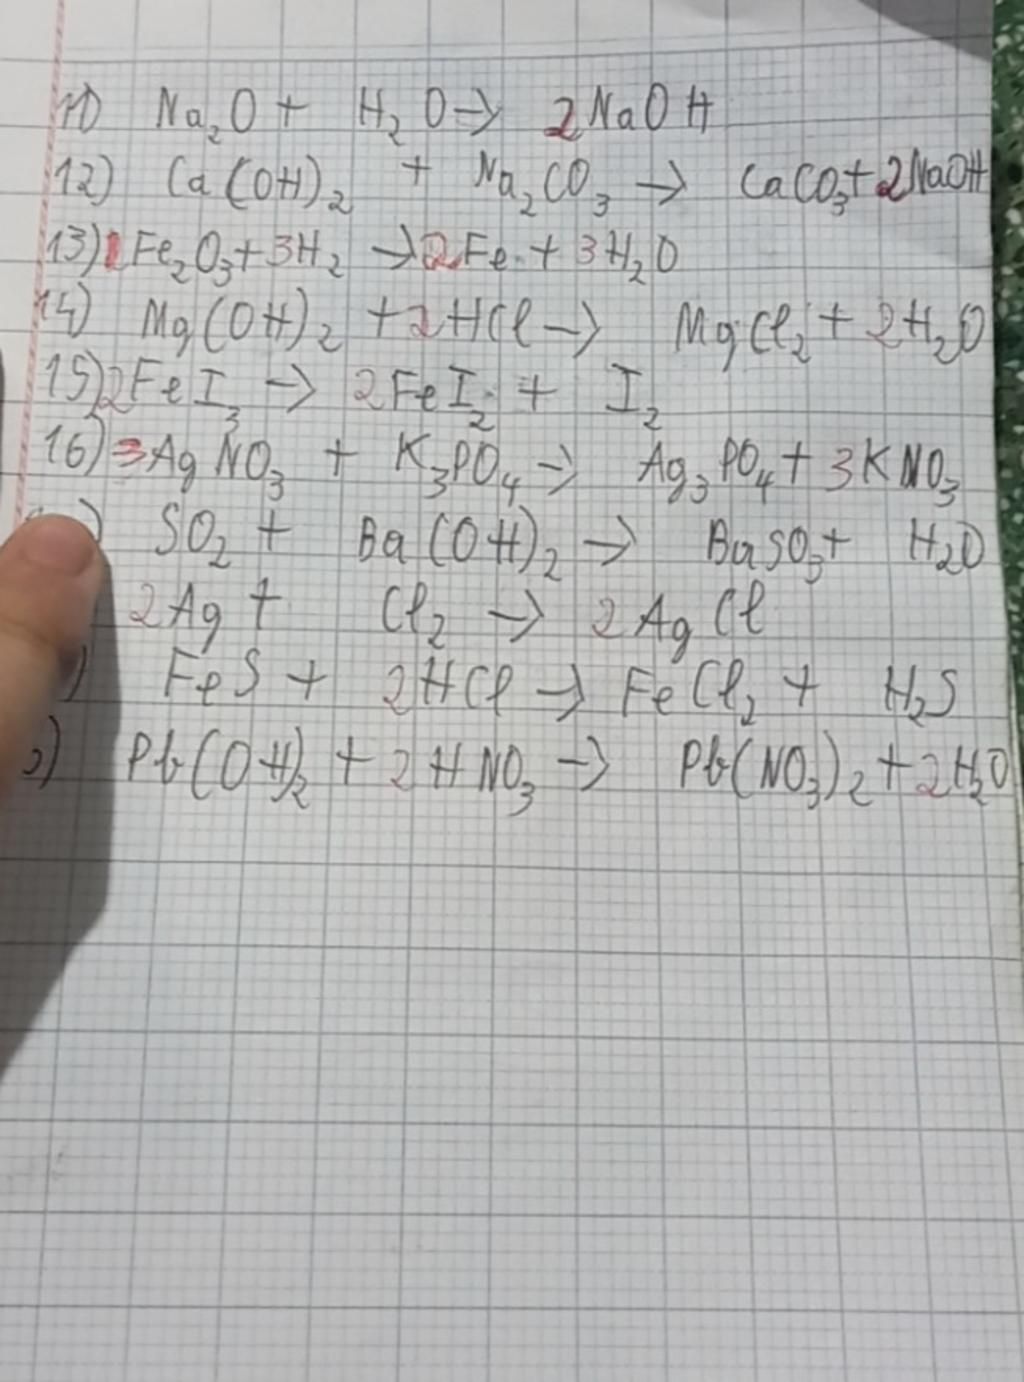 11) Na₂O + H₂O → 2NaOH
12) Ca(OH)₂ + Na₂CO₃ → CaCO₃ + 2NaOH
13) 1Fe₂O₃ + 3H₂ → 2Fe + 3H₂O
14) Mg(OH)₂ + 2HCl → MgCl₂ + 2H₂O
15) 2FeI₃ → 2FeI₂ + I₂
16) 3AgNO₃ + K₃PO₄ → Ag₃PO₄ + 3KNO₃
) SO₂ + Ba(OH)₂ → BaSO₃ + H₂O
2Ag + Cl₂ → 2AgCl
) FeS + 2HCl → FeCl₂ + H₂S
) Pb(OH)₂ + 2HNO₃ → Pb(NO₃)₂ + 2H₂O